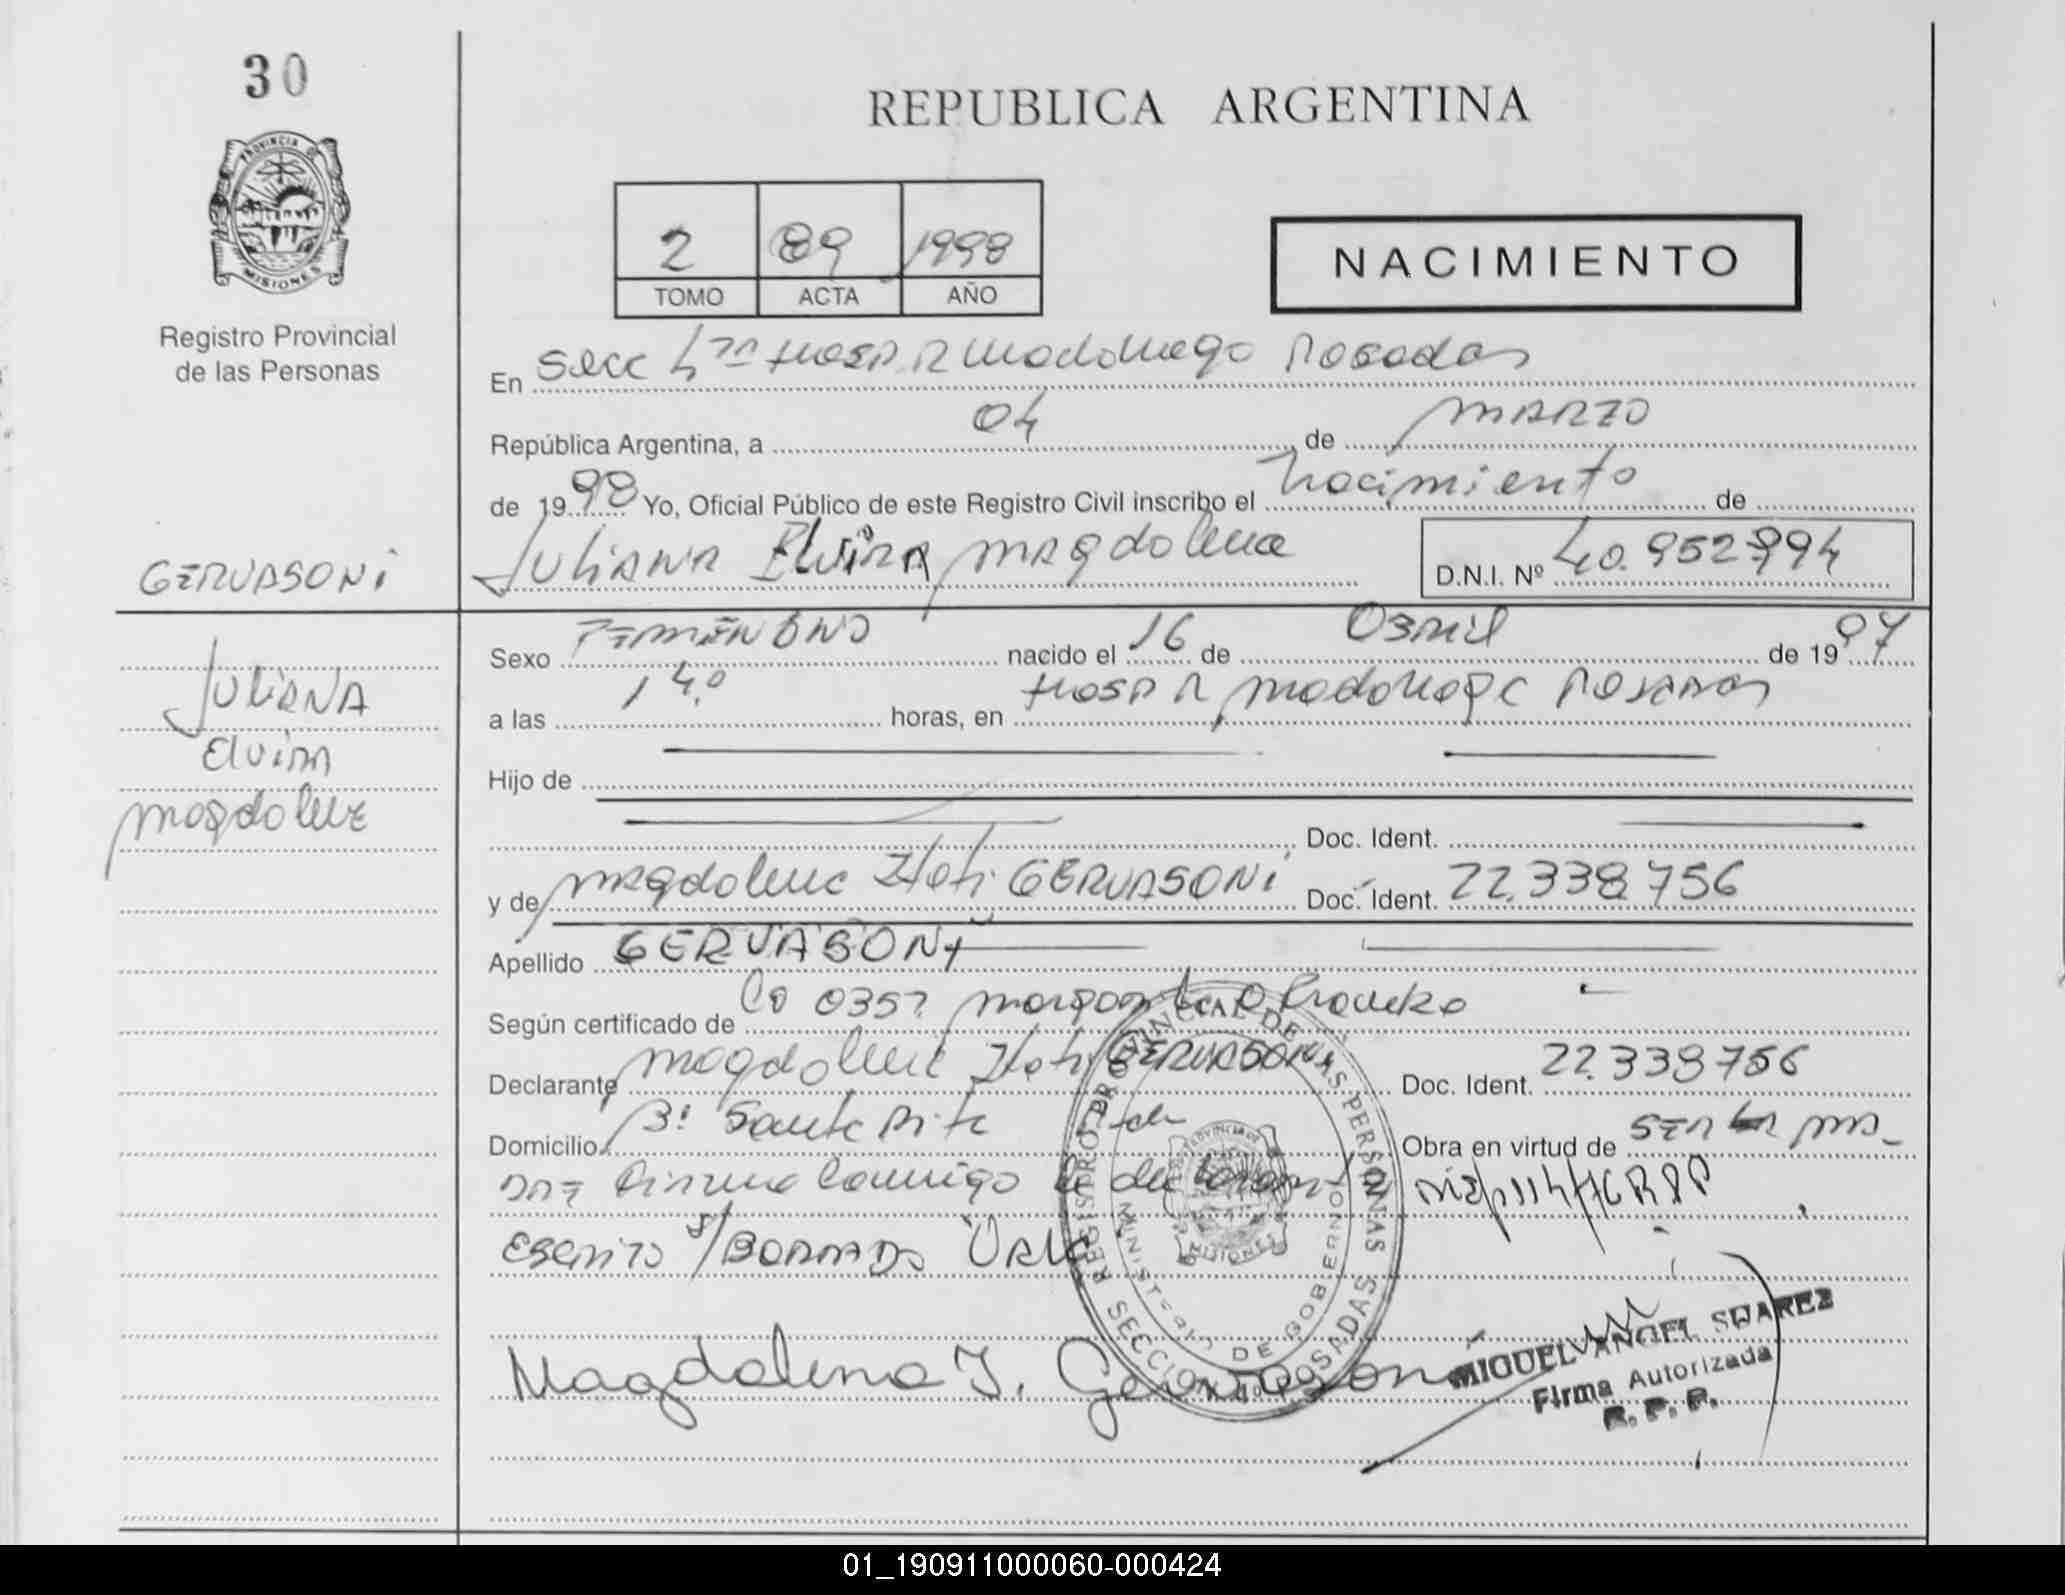 30
REPUBLICA ARGENTINA
PROVINCIA DE
MISIONES
Registro Provincial
de las Personas
2 89 1998
TOMO ACTA AÑO
NACIMIENTO
En Secc 4ta Hosp R Madariaga Posadas
República Argentina, a 04 de MARZO
de 1998 Yo, Oficial Público de este Registro Civil inscribo el Nacimiento de
GERVASONI
JULIANA Elvira Magdalena D.N.I. Nº 40.952.994
JULIANA
Elvira
Magdalena
Sexo FEMENINO nacido el 16 de de 1997
a las 14.0 horas, en Hosp R Madariaga Posadas
Hijo de
Doc. Ident.
y de Magdalena Itati GERVASONI Doc. Ident. 22.338.756
Apellido GERVASONI
Según certificado de
Declarante Magdalena Itati GERVASONI Doc. Ident. 22.338756
Domicilio Bº Santa Rita Obra en virtud de SER LA MA-
DRE Firma Conmigo la declarante
ESCRITO S/BORRADO
Magdalena I. Gervasoni
REGISTRO PROVINCIAL DE LAS PERSONAS
MINISTERIO DE GOBIERNO
PROVINCIA DE
MISIONES
SECCION 4º POSADAS
MIGUEL ANGEL SUAREZ
Firma Autorizada
R. P. P.
01_190911000060-000424